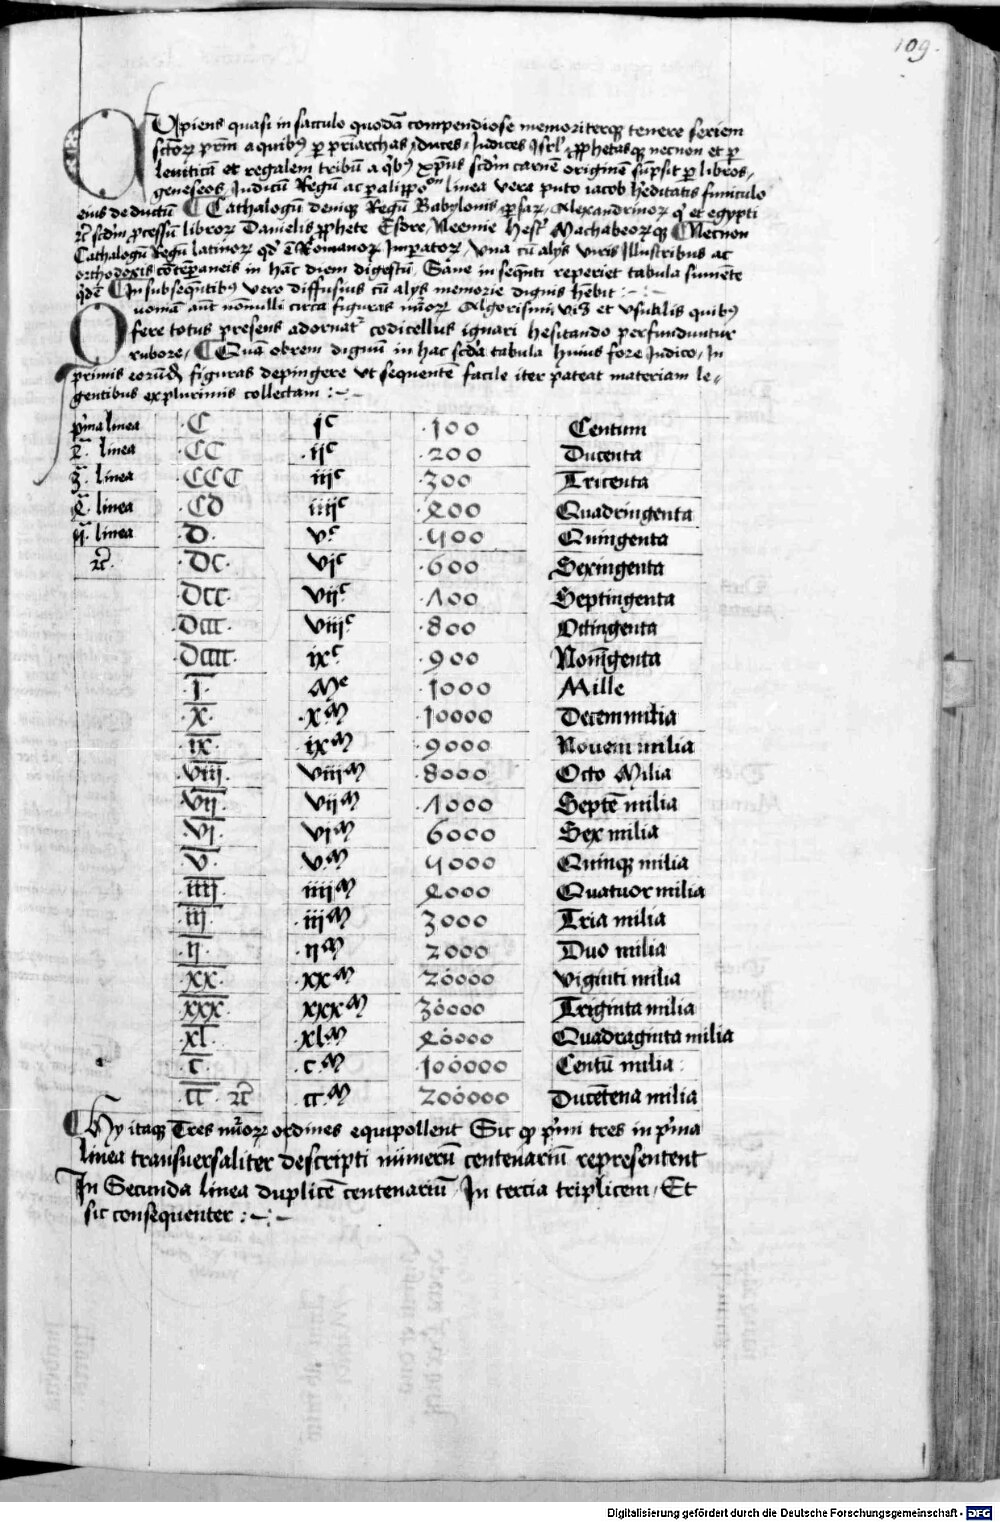 109.
Cupiens quasi in sacculo quodā compendiose memoriterqꝫ tenere seriem
sctōrꝫ prm̄ a quibꝰ per priarchas, duces, Judices Isrl', ꝓphetasqꝫ necnon et per
leuiticā et regalem tribū a qͥbꝰ xp̄us scd̄m carnē originē sūpsit per libros,
geneseos, Judicū Regū ac paralippoⁿ linea vera puto iacob heditatis funiculo
eius deductū Cathalogū deniqꝫ Regū Babylonis, persarꝫ, Alexandrinorꝫ qͥ et egypti
ꝛc̄ scd̄m ꝓcessū librorꝫ Danielis ꝓphete Esdre, Neemie Hest' Machabeorꝫqꝫ Necnon
Cathalogū Regū latinorꝫ qd' ē Romanorꝫ Imperatorꝫ, vna cū alijs viris Illustribus ac
orthodoxis cōtēperaneis in hāc diem digestū, Sane in seqn̄ti reperiet tabula sumēte
In subsequētibꝰ vero diffusius cū alijs memorie dignis hēbit :-:-
Quoniam aūt nōnulli circa figuras nūorꝫ Algorismi, vis et vsualis quibꝰ
fere totus presens adornatʳ codicellus ignari hesitando perfunduntur
rubore, Quā obrem dignū in hac scd̄a tabula huius fore Judico, In
primis eorūdē figuras depingere vt sequentē facile iter pateat materiam le,
gentibus explurimis collectam :- -
pͥma linea ·C jᶜ ·100 Centum
2ª linea ·CC ·ijᶜ ·200 Ducenta
3ª linea ·CCC iijᶜ ·300 Tricenta
4ª linea ·CD iiijᶜ ·400 Quadringenta
5ª linea ·D· vᶜ ·500 Quingenta
ꝛc̄· ·DC· vjᶜ ·600 Sexingenta
·DCC· vijᶜ ·700 Septingenta
·DCCC· viijᶜ ·800 Octingenta
·DCCCC· ixᶜ ·900 Noningenta
·I̅· Mᵉ ·1000 Mille
·X̅· ·xᴹ ·10000 Decemmilia
·ix̅· ixᴹ ·9000 Nouem milia
·viij̅· viijᴹ ·8000 Octo Milia
·vij̅· vijᴹ ·7000 Septē milia
·vj̅· vjᴹ 6000 Sex milia
·v̅· vᴹ 5000 Quinqꝫ milia
·iiij̅· iiijᴹ ·4000 Quatuor milia
·iij̅· iijᴹ 3000 Tria milia
·ij̅· ·ijᴹ 2000 Duo milia
·xx̅· ·xxᴹ 20000 viginti milia
·xxx̅· xxxᴹ 30000 Triginta milia
·xl̅· ·xlᴹ 40000 Quadraginta milia
·c̅· ·cᴹ ·100000 Centū milia
·cc̅· ꝛc̄ ·ccᴹ 200000 Ducētena milia
Hy itaqꝫ Tres nūorꝫ ordines equipollent Sic qꝫ pͥmi tres in pͥma
linea transuersaliter descripti nūmerū centenariū representent
In Secunda linea duplicē centenariū, In tercia triplicem, Et
sic consequenter :-:-
Digitalisierung gefördert durch die Deutsche Forschungsgemeinschaft - DFG